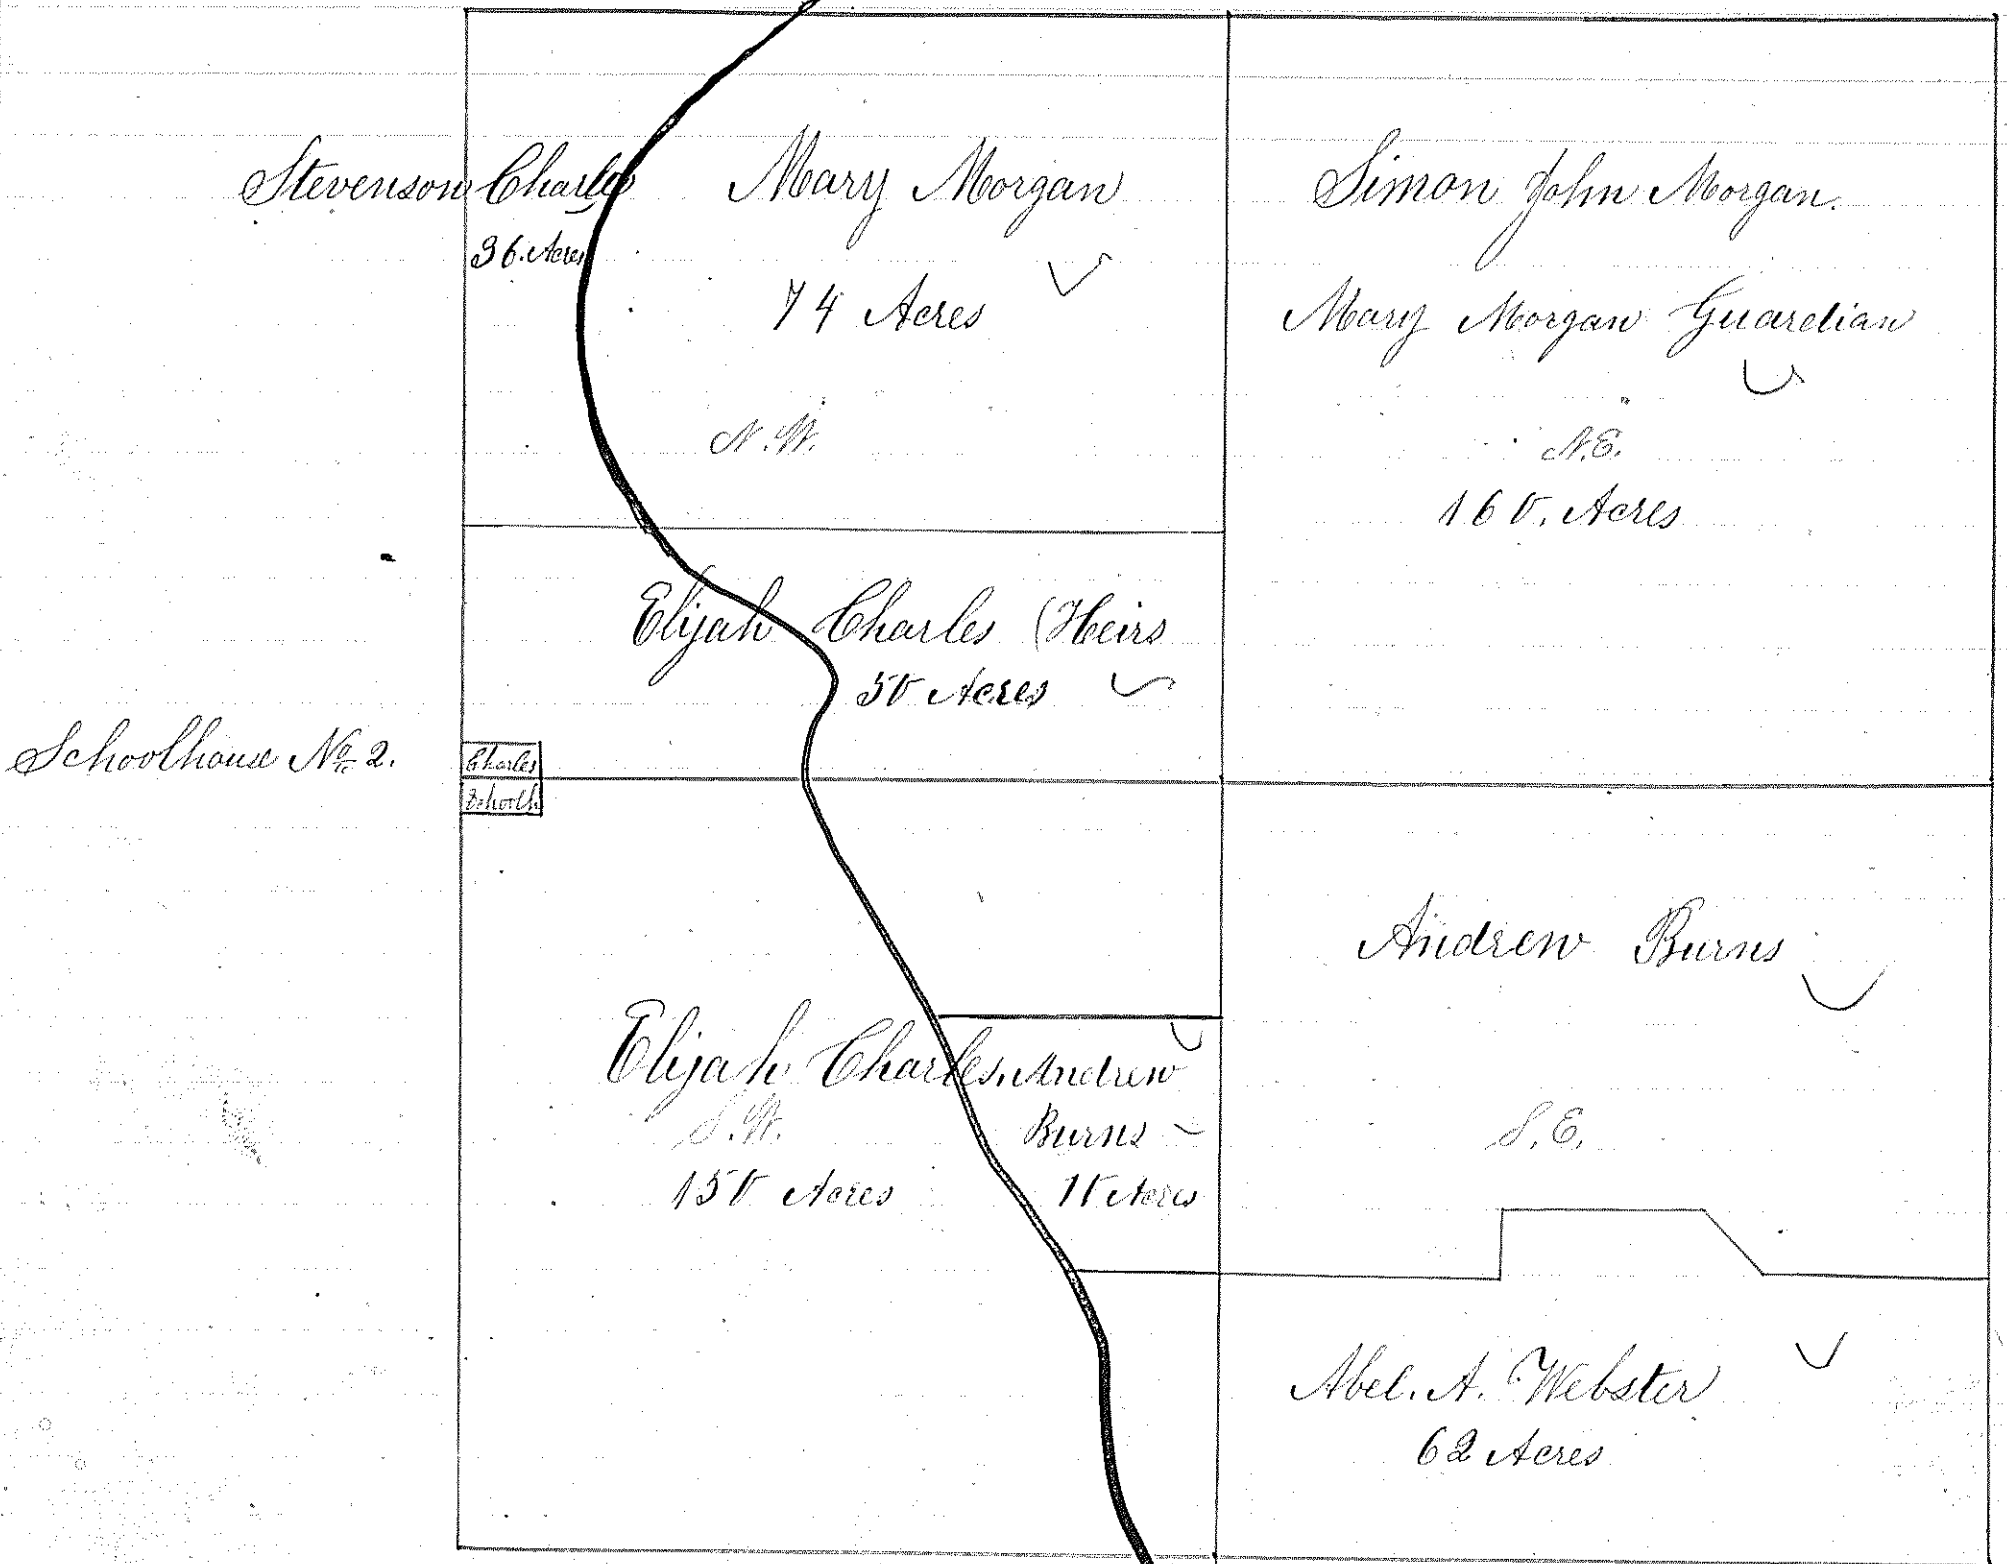 Stevenson Charles
36. Acres
Mary Morgan
74 Acres
N.W.
Simon John Morgan.
Mary Morgan Guardian
N.E.
160. Acres
Elijah Charles (Heirs
50 Acres
Schoolhouse No. 2.
Charles
Schoolh.
Andrew Burns
S.E.
Elijah Charles.
S.W.
150 Acres
Andrew
Burns
10 Acres
Abel. A. Webster
62 Acres